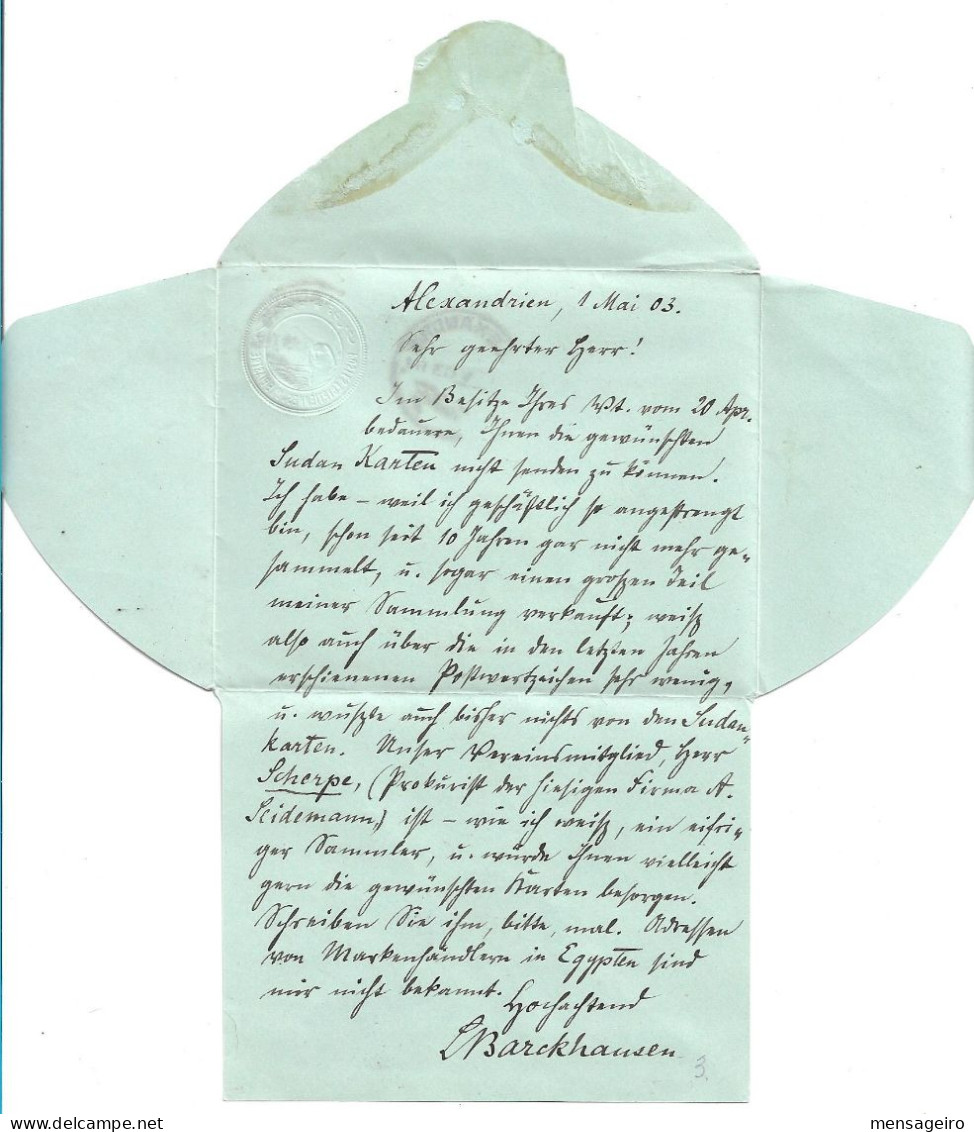 Alexandrien, 1 Mai 03.
Sehr geehrter Herr!
Im Besitze Ihres Wt. vom 20 Apr.
bedauere, Ihnen die gewünschten
Sudan Karten nicht senden zu können.
Ich habe – weil ich geschäftlich so angestrengt
bin, schon seit 10 Jahren gar nicht mehr ge-
sammelt, u. sogar einen großen Teil
meiner Sammlung verkauft; weiß
also auch über die in den letzten Jahren
erschienenen Postwertzeichen sehr wenig,
u. wußte auch bisher nichts von den Sudan-
karten. Unser Vereinsmitglied, Herr
Scherpe, (Prokurist der hiesigen Firma A.
Seidemann,) ist – wie ich weiß, ein eifri-
ger Sammler, u. würde Ihnen vielleicht
gern die gewünschten Karten besorgen.
Schreiben Sie ihm, bitte, mal. Adressen
von Markenhändlern in Egypten sind
mir nicht bekannt.
Hochachtend
LBarckhausen
3.
delcampe.net
mensageiro